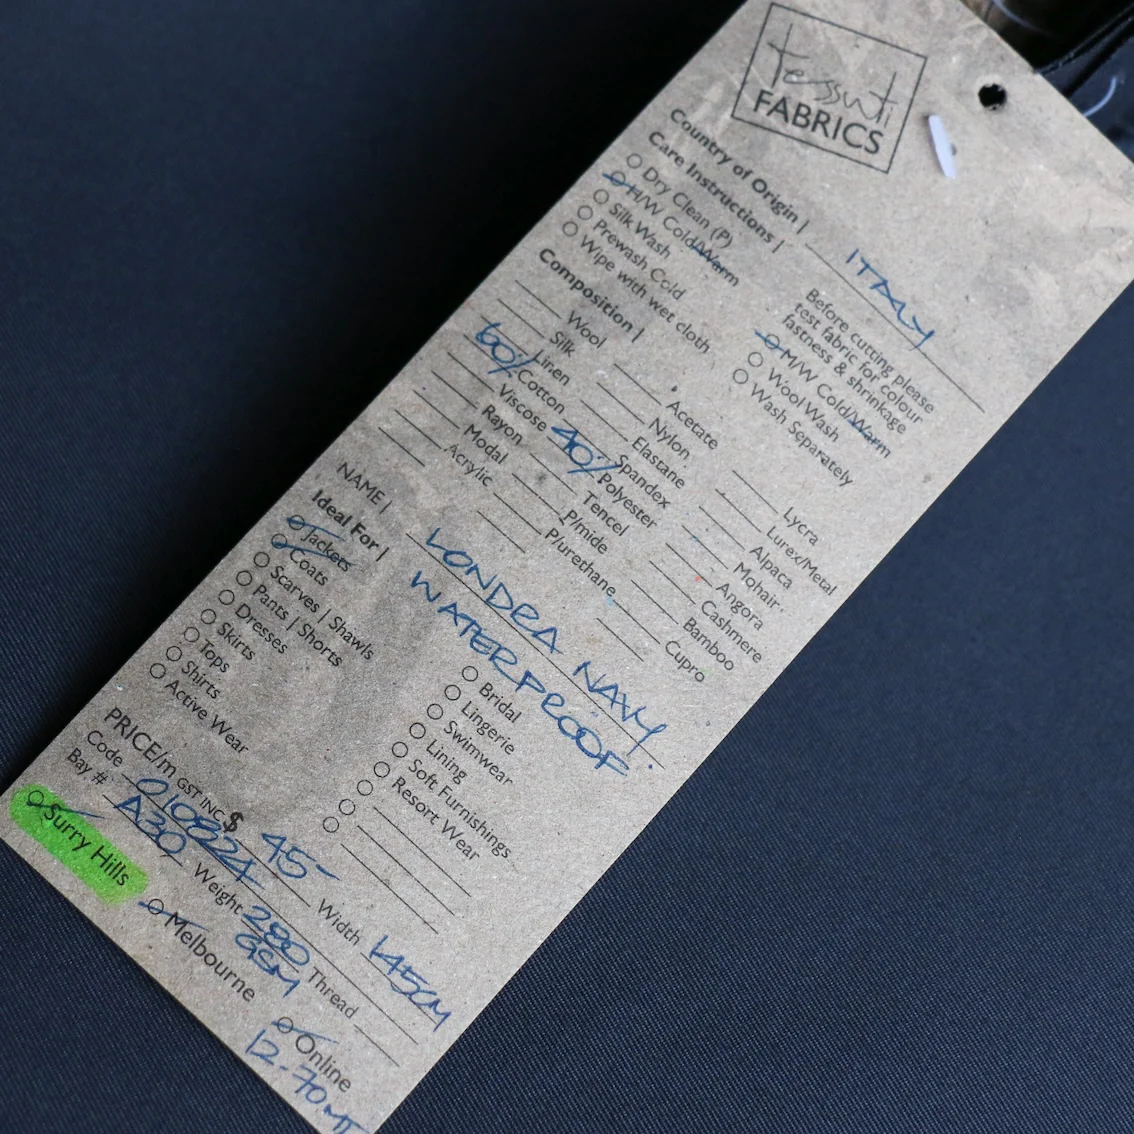 tessuti
FABRICS
Country of Origin | ITALY
Care Instructions |
Dry Clean (P)
H/W Cold/Warm
Silk Wash
Prewash Cold
Wipe with wet cloth
Before cutting please
test fabric for colour
fastness & shrinkage
M/W Cold/Warm
Wool Wash
Wash Separately
Composition |
Wool
Silk
Linen
60% Cotton
Viscose
Rayon
Modal
Acrylic
Acetate
Nylon
Elastane
Spandex
40% Polyester
Tencel
P/mide
P/urethane
Lycra
Lurex/Metal
Alpaca
Mohair
Angora
Cashmere
Bamboo
Cupro
NAME | LONDRA NAVY
WATERPROOF
Ideal For |
Jackets
Coats
Scarves | Shawls
Pants | Shorts
Dresses
Skirts
Tops
Shirts
Active Wear
Bridal
Lingerie
Swimwear
Lining
Soft Furnishings
Resort Wear
PRICE/m GST INC. $ 45-
Code 010824 Width 145CM
Bay # A30 Weight 280 GSM Thread
Surry Hills
Melbourne
Online
12.70MT